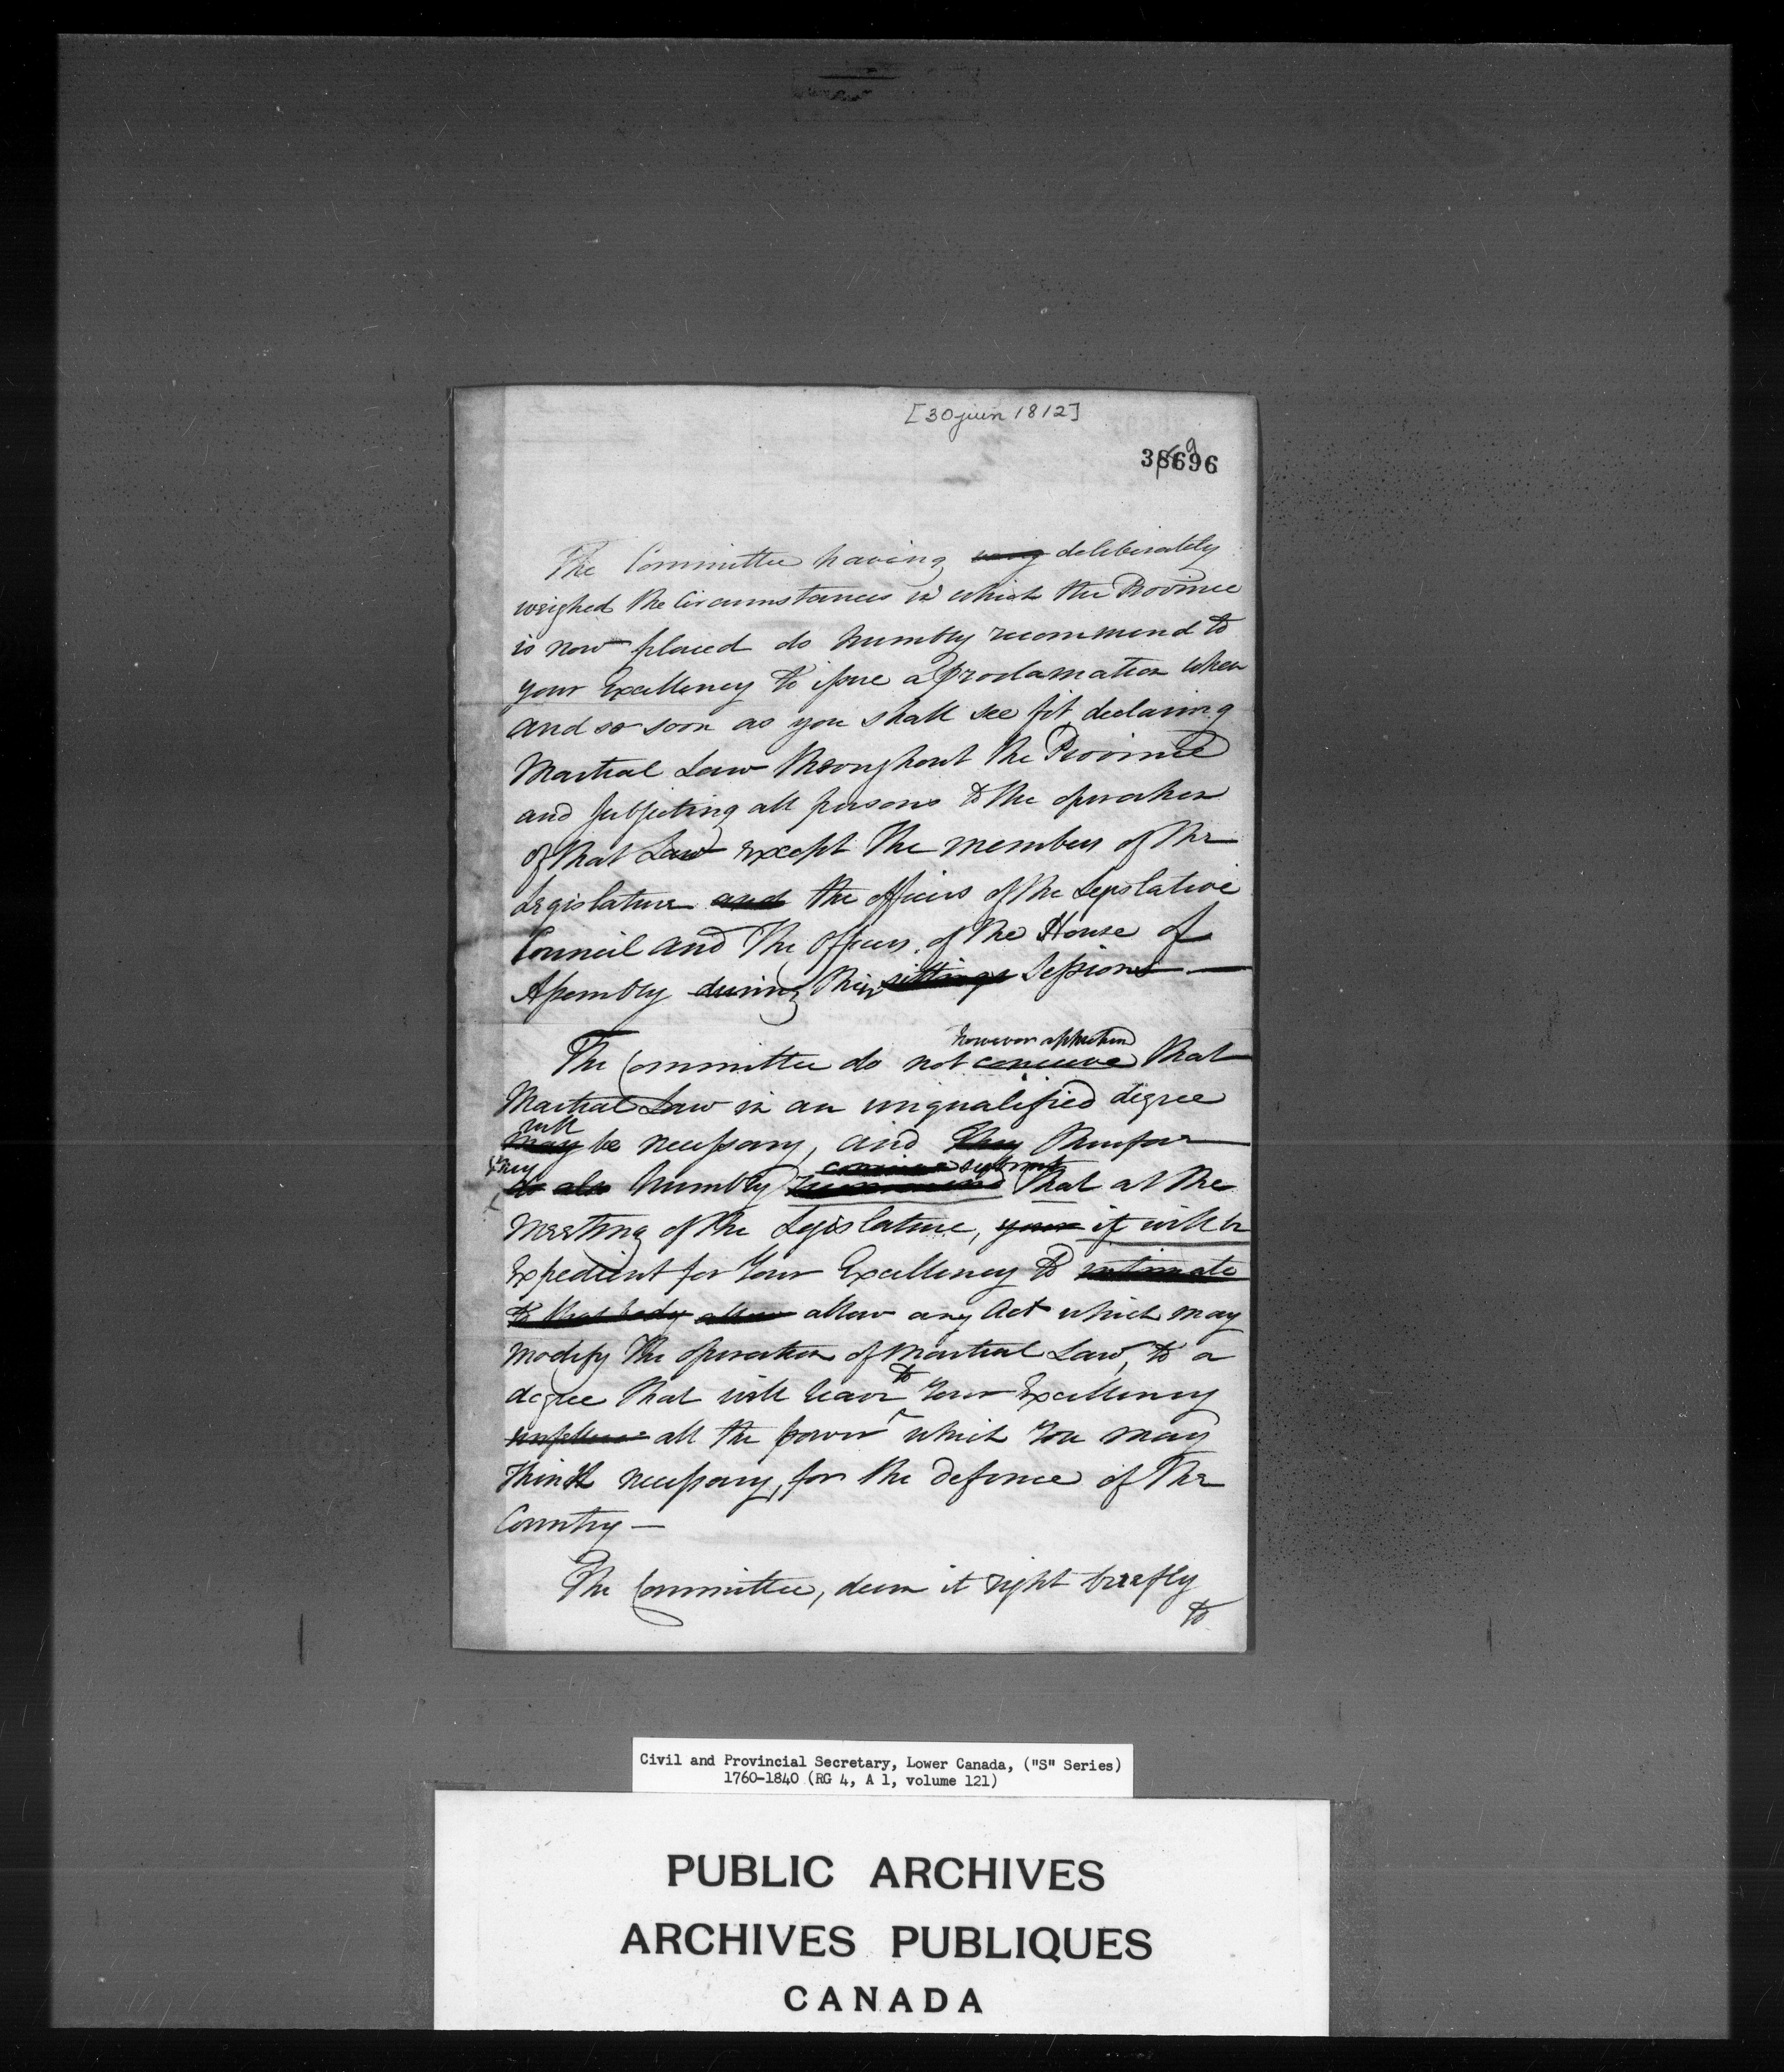 [30 juin 1812]
38696
9
The Committee having very deliberately
weighed the Circumstances in which the Province
is now placed do humbly recommend to
your Excellency to issue a Proclamation when
and so soon as you shall see fit declaring
Martial Law throughout the Province
and subjecting all persons to the operation
of that Law except the members of the
Legislature and the officers of the Legislative
Council and the Officers of the House of
Assembly during their sittings Sessions —
however apprehend
The Committee do not conceive that
Martial Law in an unqualified degree
will
may be necessary, and they therefore
they conceive submit
do also humbly recommend that at the
Meeting of the Legislature, your it will be
Expedient for Your Excellency to intimate
to that body allow allow any Act which may
Modify the operation of Martial Law, to a
to
degree that will leave Your Excellency
all the power which You may
think necessary, for the defence of the
Country —
The Committee, deem it right briefly
to
Civil and Provincial Secretary, Lower Canada, ("S" Series)
1760-1840 (RG 4, A 1, volume 121)
PUBLIC ARCHIVES
ARCHIVES PUBLIQUES
CANADA